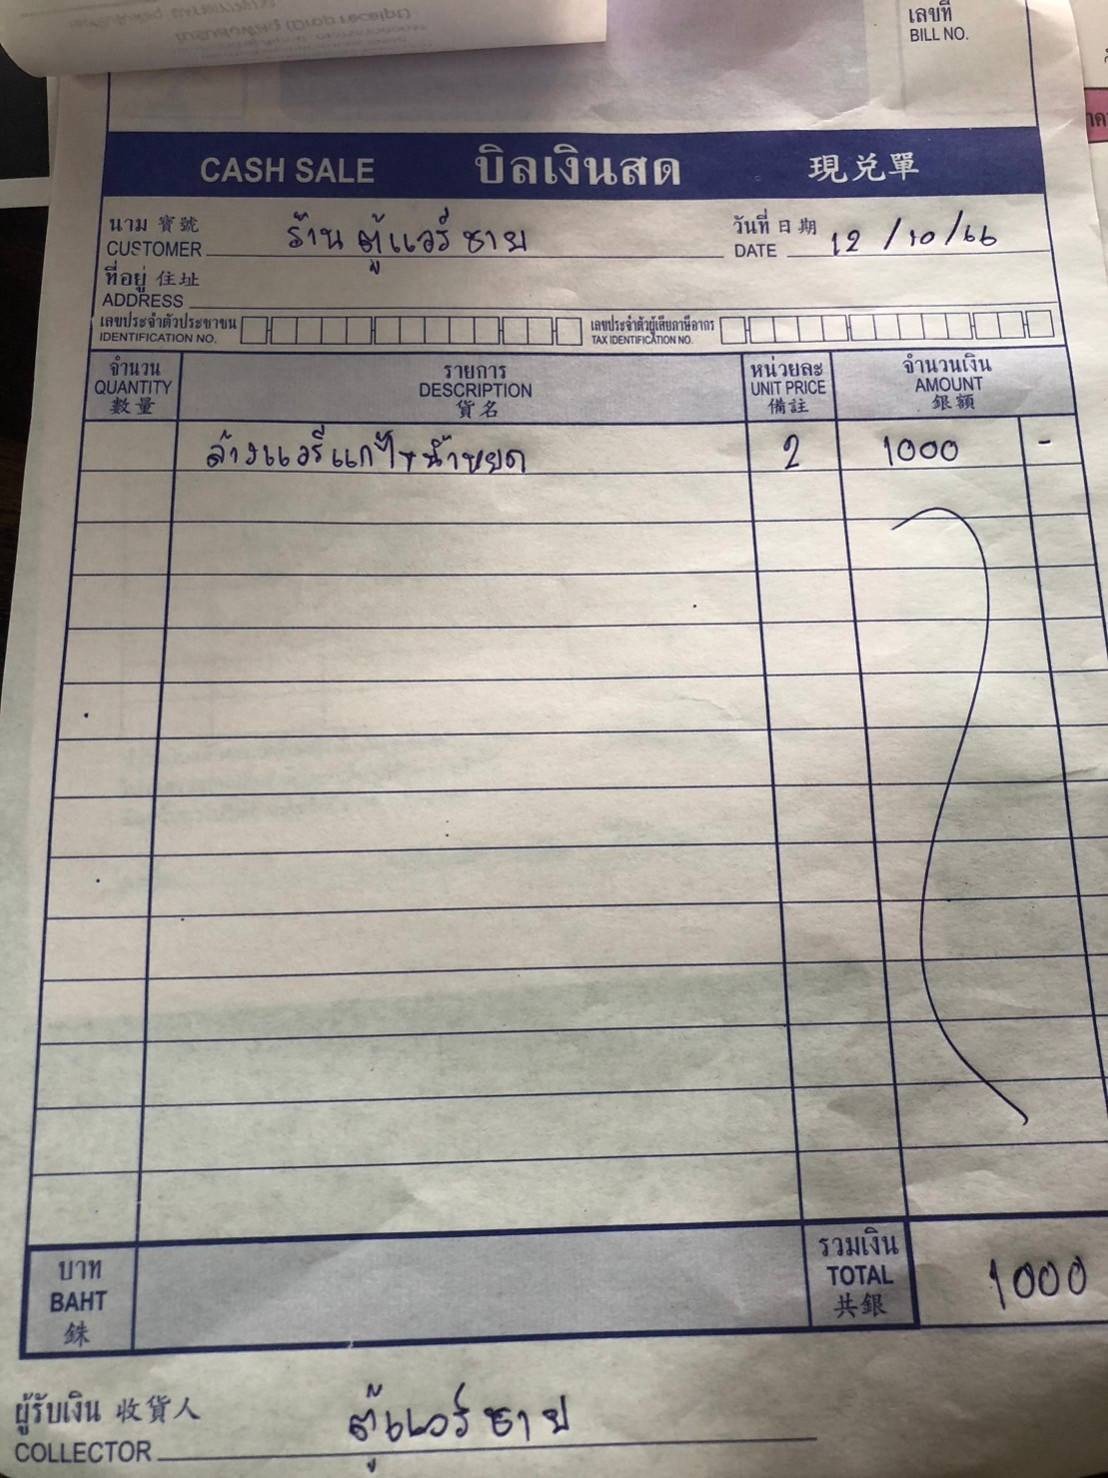 เลขที่
BILL NO.
CASH SALE บิลเงินสด 現兌單
นาม 寶號
CUSTOMER ร้าน ตู่แอร์ ชาย
วันที่ 日期
DATE 12/10/66
ที่อยู่ 住址
ADDRESS
เลขประจำตัวประชาชน
IDENTIFICATION NO.
เลขประจำตัวผู้เสียภาษีอากร
TAX IDENTIFICATION NO.
จำนวน
QUANTITY
數量
รายการ
DESCRIPTION
貨名
หน่วยละ
UNIT PRICE
備註
จำนวนเงิน
AMOUNT
銀額
ล้างแอร์แก้ไขน้ำหยด 2 1000 -
บาท
BAHT
銖
รวมเงิน
TOTAL
共銀
1000
ผู้รับเงิน 收貨人
COLLECTOR ตู่แอร์ ชาย